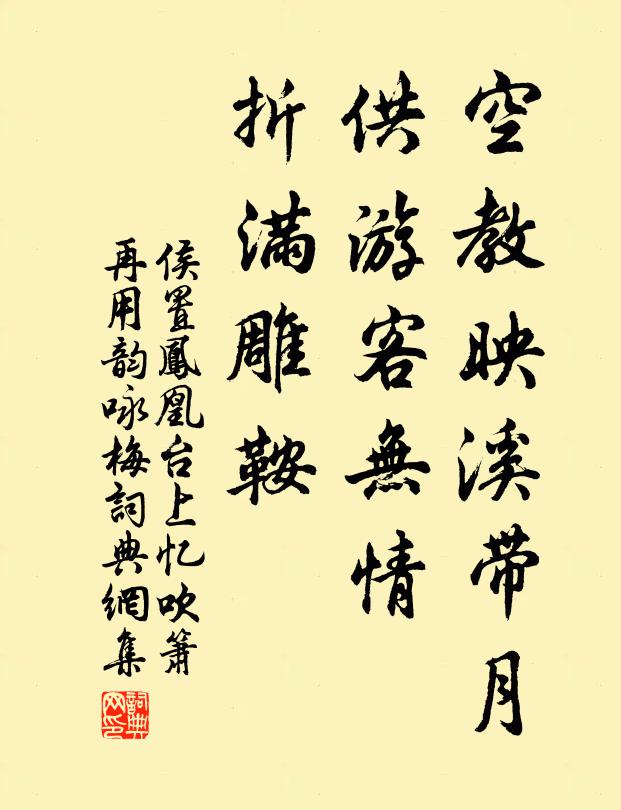 空教映溪带月
供游客無情
折滿雕鞍
侯置鳳凰台上忆吹箫
再用韵咏梅詞典網集
詞典
网印